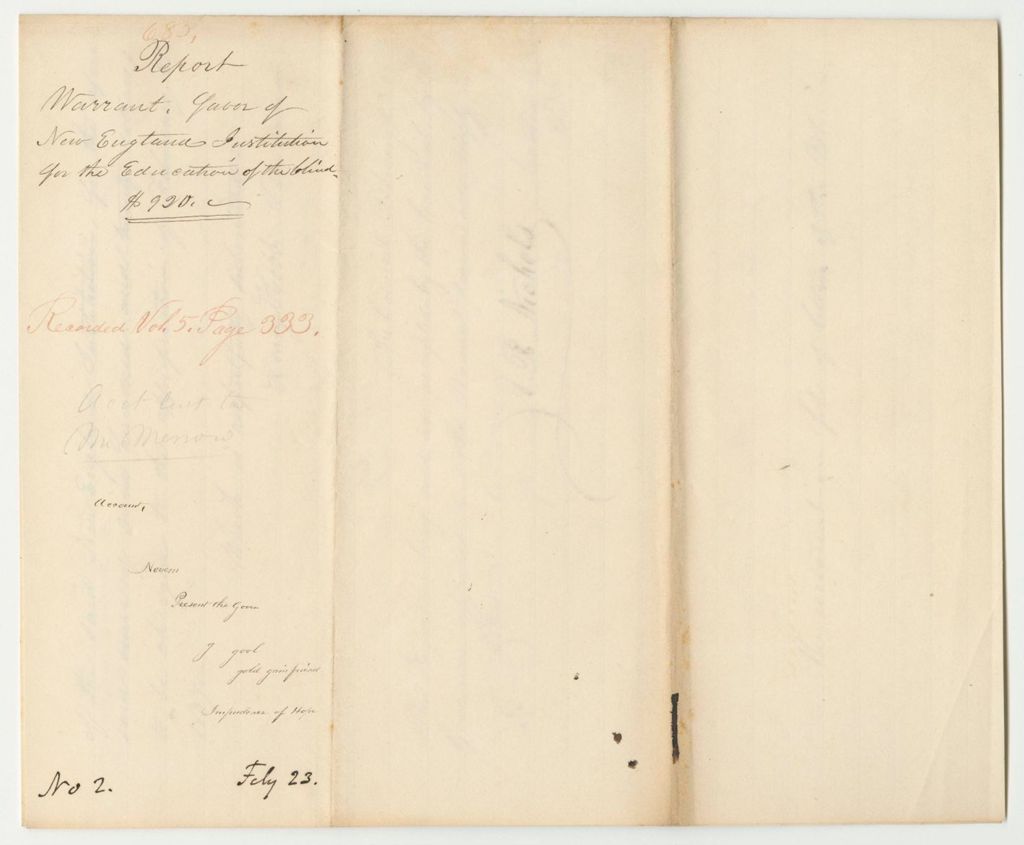 683,
Report
Warrant. favor of
New England Institution
for the Education of the blind.
$ 920.
Recorded Vol. 5. Page 333.
Acct sent to
Mr. Merrow
Account,
Novem
Present the Gover
I gool
gold
of Hope
No 2.
Feby 23.